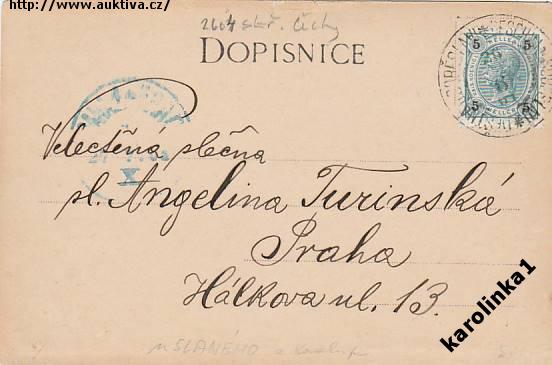 http://www.auktiva.cz/
DOPISNICE
5 5
5 5
X
Velectěná slečna
sl. Angelina Turinská
Praha
Hálkova ul. 13.
u SLANÉHO
karolinka1